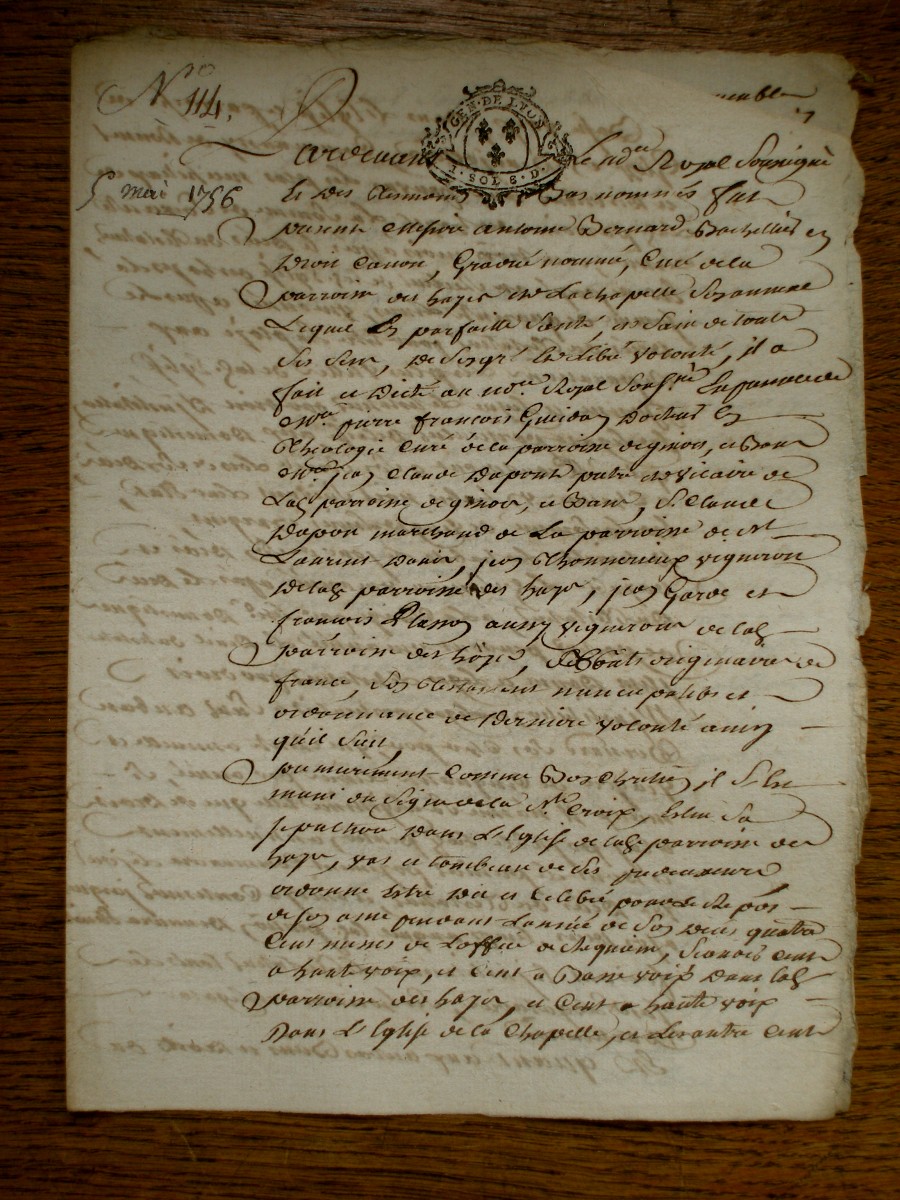 N.º 114.
GEN. DE LYON
1. SOL 8. D.
Pardevant Le no.re Royal Soussigné
5 mai 1756
Et des temoins Bas nommés fut
present Messire antoine Bernard Bachellier en
droit Canon, Gradué nommé, Curé de la
parroisse des hayes et de La chapelle
Lequel En parfaitte Santé, et Sain de touts
Ses Sens, de Son gré et Libre volonté, il a
fait et Dicté au no.re Royal Sous.né En presence de
M.re pierre françois Guidon Docteur En
Theologie Curé de la parroisse de
M.re jean Claude Dupont pretre et vicaire de
Lad. parroisse de S.r Claude
Dupon marchand de La parroisse de St
Laurent jean Thonnerieux vigneron
De lad. parroisse des hayes, jean Garde et
francois Plasson aussy vignerons de lad.
parroisse des hayes, originaire de
france, Son testament nuncupatif et
ordonnance de derniere volonté ainsy
quil Suit,
premierement Comme Bon Chretien il S'est
muni du Signe de la S.te Croix, Eslit Sa
sepulture dans L'Eglise de lad. parroisse des
hayes, vas et tombeau de Ses predecesseurs
ordonne Estre Dit et Celebré pour le Repos
de Son ame pendant L'année de Son deces quatre
Cent messes de L'office de Requiem, Scavoir Cent
a haute voix, et Cent a Basse voix dans lad.
parroisse des hayes, et Cent a haute voix
Dans L'Eglise de la Chapelle, et Les autre Cent